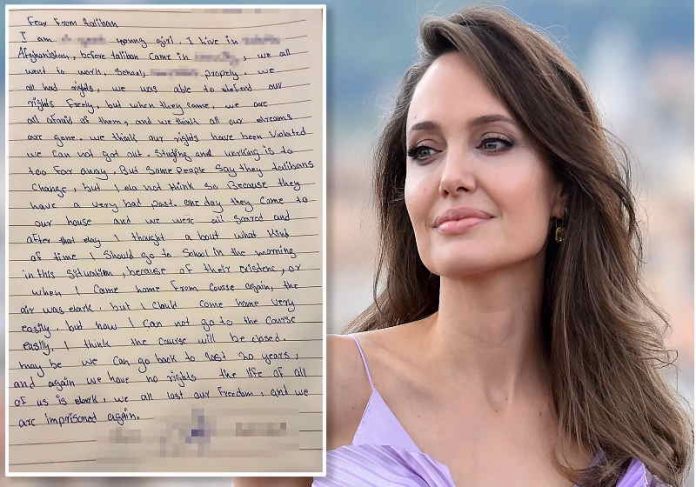 Fear From Taliban
I am young girl. I live in
Afghanistan, before taliban came in , we all
want to work, School, proprely, we
all had rights, we was able to defend our
rights freely, but when they came, we are
all afraid of them, and we think all our dreams
are gone. we think our rights have been violated
we can not got out. Studing and working is to
too far away. But some people say they talibans
Change, but I do not think so Because they
have a very bad past. one day they come to
our house and we were all scared and
after that day I thought a bout what Kind
of time I Should go to School In the morning
in this situation, because of their existenc, or
when I came home From course again, the
air was dark, but I Could come home very
easily. but now I can not go to the Course
easily, I think the course will be closed.
may be we can go back to last 20 years,
and again we have no rights the life of all
of us is dark, we all lost our freedom, and we
are imprisoned again.